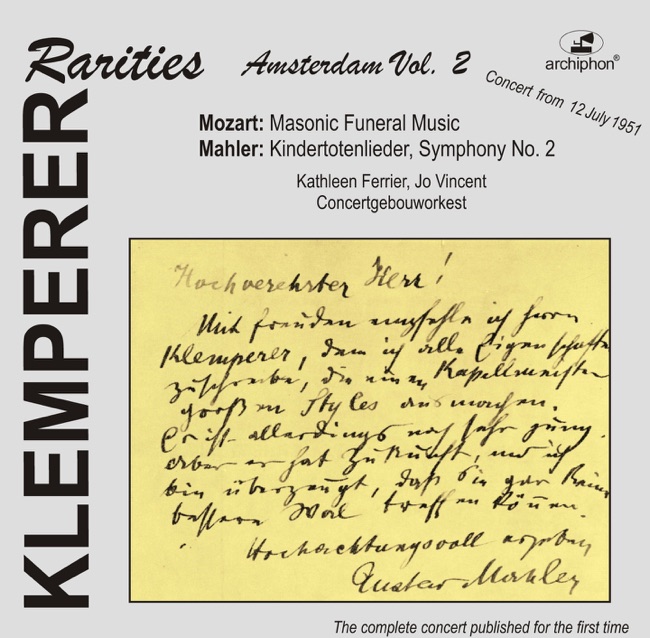 KLEMPERER
Rarities
Amsterdam Vol. 2
archiphon®
Concert from 12 July 1951
Mozart: Masonic Funeral Music
Mahler: Kindertotenlieder, Symphony No. 2
Kathleen Ferrier, Jo Vincent
Concertgebouworkest
Hochverehrter Herr!
Mit freuden empfehle ich herrn
Klemperer, dem ich alle Eigenschaften
zuschreibe, die einen Kapellmeister
großen Styles ausmachen.
Er ist allerdings noch sehr jung.
aber er hat Zukunft, und ich
bin überzeugt, daß Sie gar keine
bessere Wal treffen können.
Hochachtungsvoll ergeben
Gustav Mahler
The complete concert published for the first time